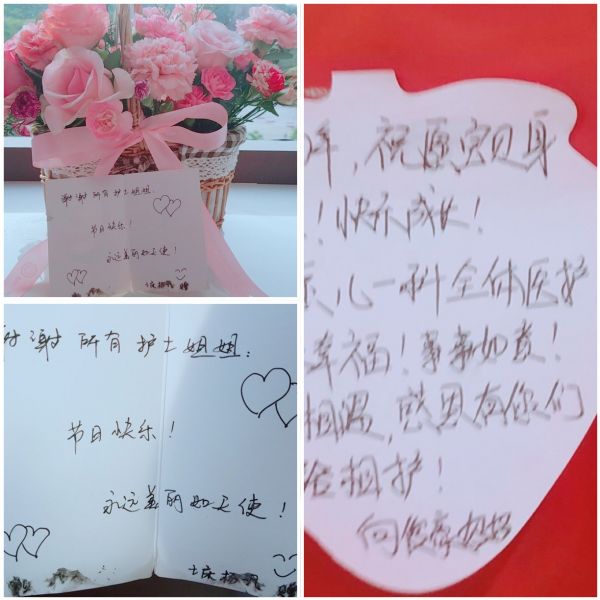 谢谢所有护士姐姐.
节日快乐!
永远美丽如天使!
谢所有护士姐姐.
节日快乐!
永远美丽如天使!
年,祝愿宝贝身
!快乐成长!
儿一科全体医护
幸福!事事如意!
相遇,感恩有你们
相护!